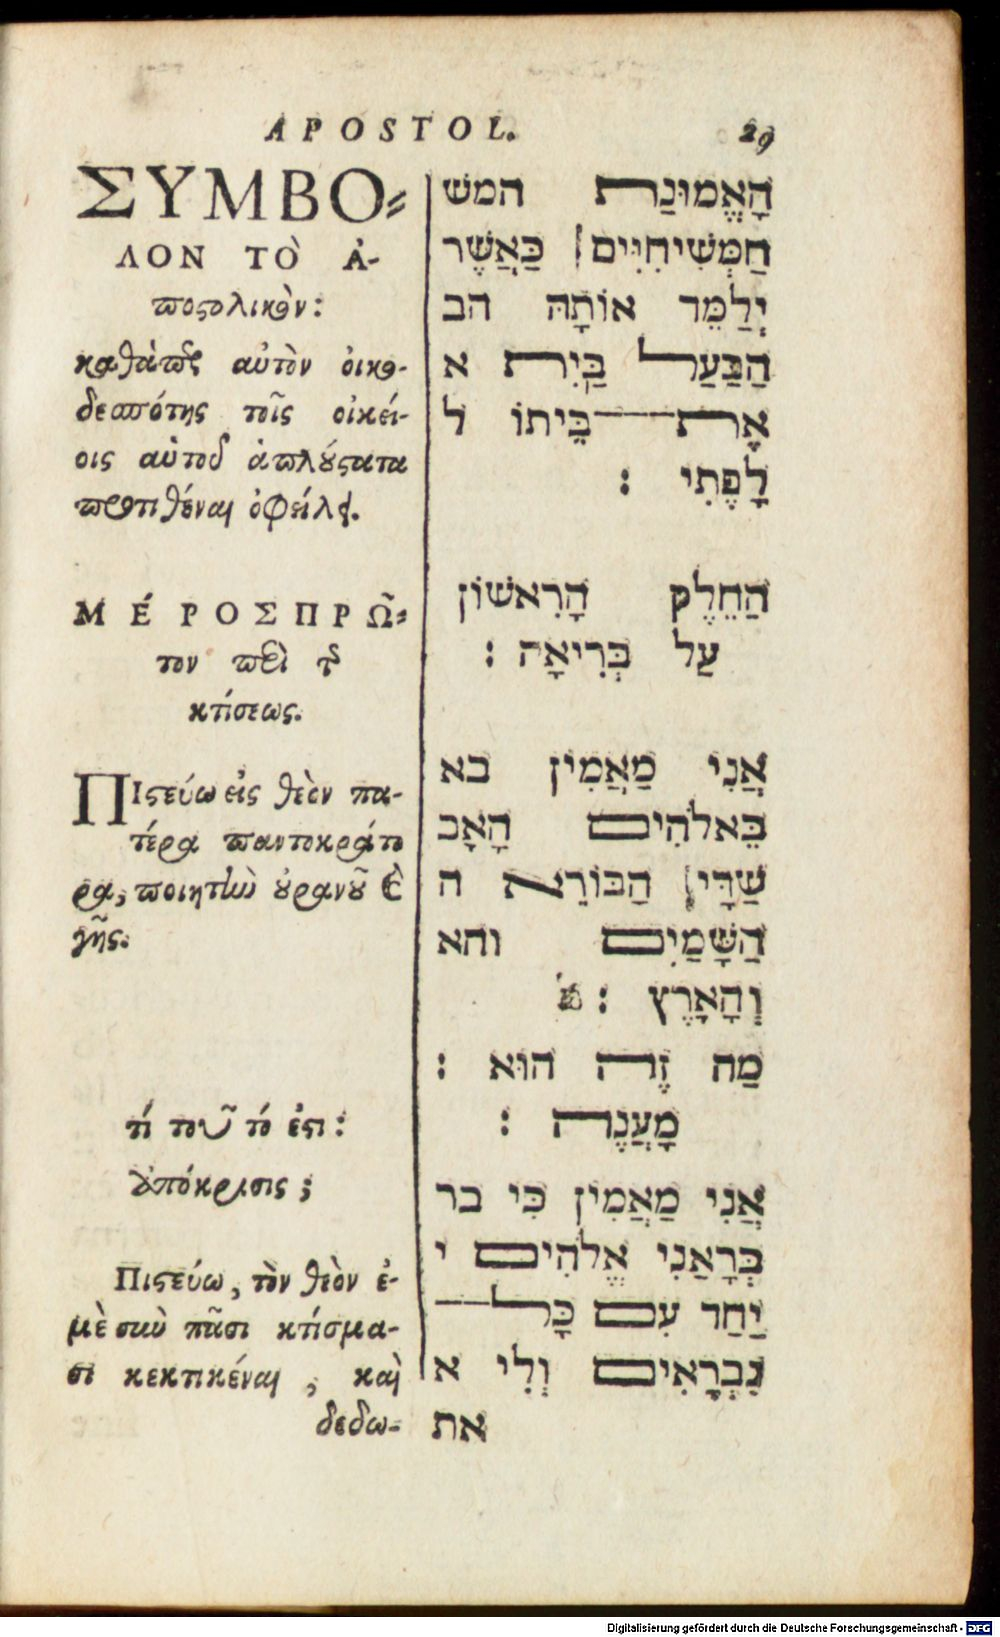 APOSTOL. 29
ΣΥΜΒΟ-
ΛΟΝ ΤῸ Ἀ-
ποϛολικὸν:
καθάπερ αὐτὸν ὁικο-
δεσπότης τοῖς οἰκεί-
οις αὐτοῦ ἁπλούϛατα
προτιθέναι ὀφείλει.
ΜΈΡΟΣ ΠΡΩ͂-
τον περὶ τῆς
κτίσεως.
ΠΙϛεύω εἰς θεὸν πα-
τέρα παντοκράτο
ρα, ποιητὴν οὐρανοῦ καὶ
γῆς.
τί τοῦτό ἐϛι:
ἀπόκρισις;
Πιϛεύω, τὸν θεὸν ἐ-
μὲ σὺν πᾶσι κτίσμα-
σι κεκτικέναι, καὶ
δεδω-
הָאֱמוּנַת המש
הַמְּשִׁיחִיִּים כַּאֲשֶׁר
יְלַמֵּד אוֹתָהּ הב
הַבַּעַל בַּיִת א
אֶת בֵּיתוֹ ל
לָפֶתִי :
הַחֵלֶק הָרִאשׁוֹן
עַל בְּרִיאָה :
אֲנִי מַאֲמִין בא
בֵּאלֹהִים הָאָב
שַׁדָּי הַבּוֹרֵא ה
הַשָּׁמַיִם והא
וְהָאָרֶץ :
מַה זֶה הוּא :
מָעֲנֶה :
אֲנִי מַאֲמִין כִּי בר
בְּרָאַנִי אֱלֹהִים י
יַחַד עִם כָּל
נִבְרָאִים וְלִי א
את